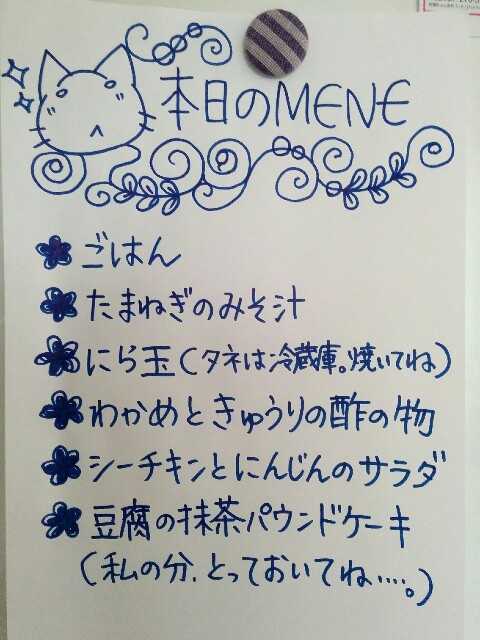 本日のMENE
ごはん
たまねぎのみそ汁
にら玉(タネは冷蔵庫。焼いてね)
わかめときゅうりの酢の物
シーチキンとにんじんのサラダ
豆腐の抹茶パウンドケーキ
(私の分、とっておいてね....。)